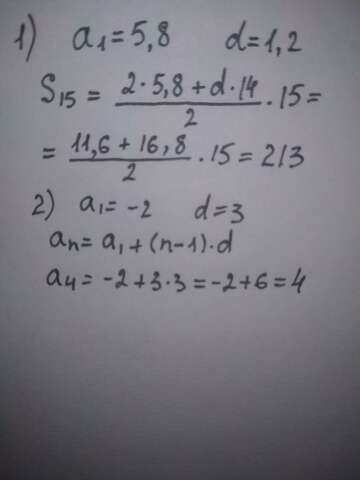 1) a₁=5,8 d=1,2
S₁₅ = (2·5,8+d·14)/2 · 15 =
= (11,6+16,8)/2 · 15 = 213
2) a₁=-2 d=3
aₙ= a₁+(n-1)·d
a₄= -2+3·3=-2+6=4